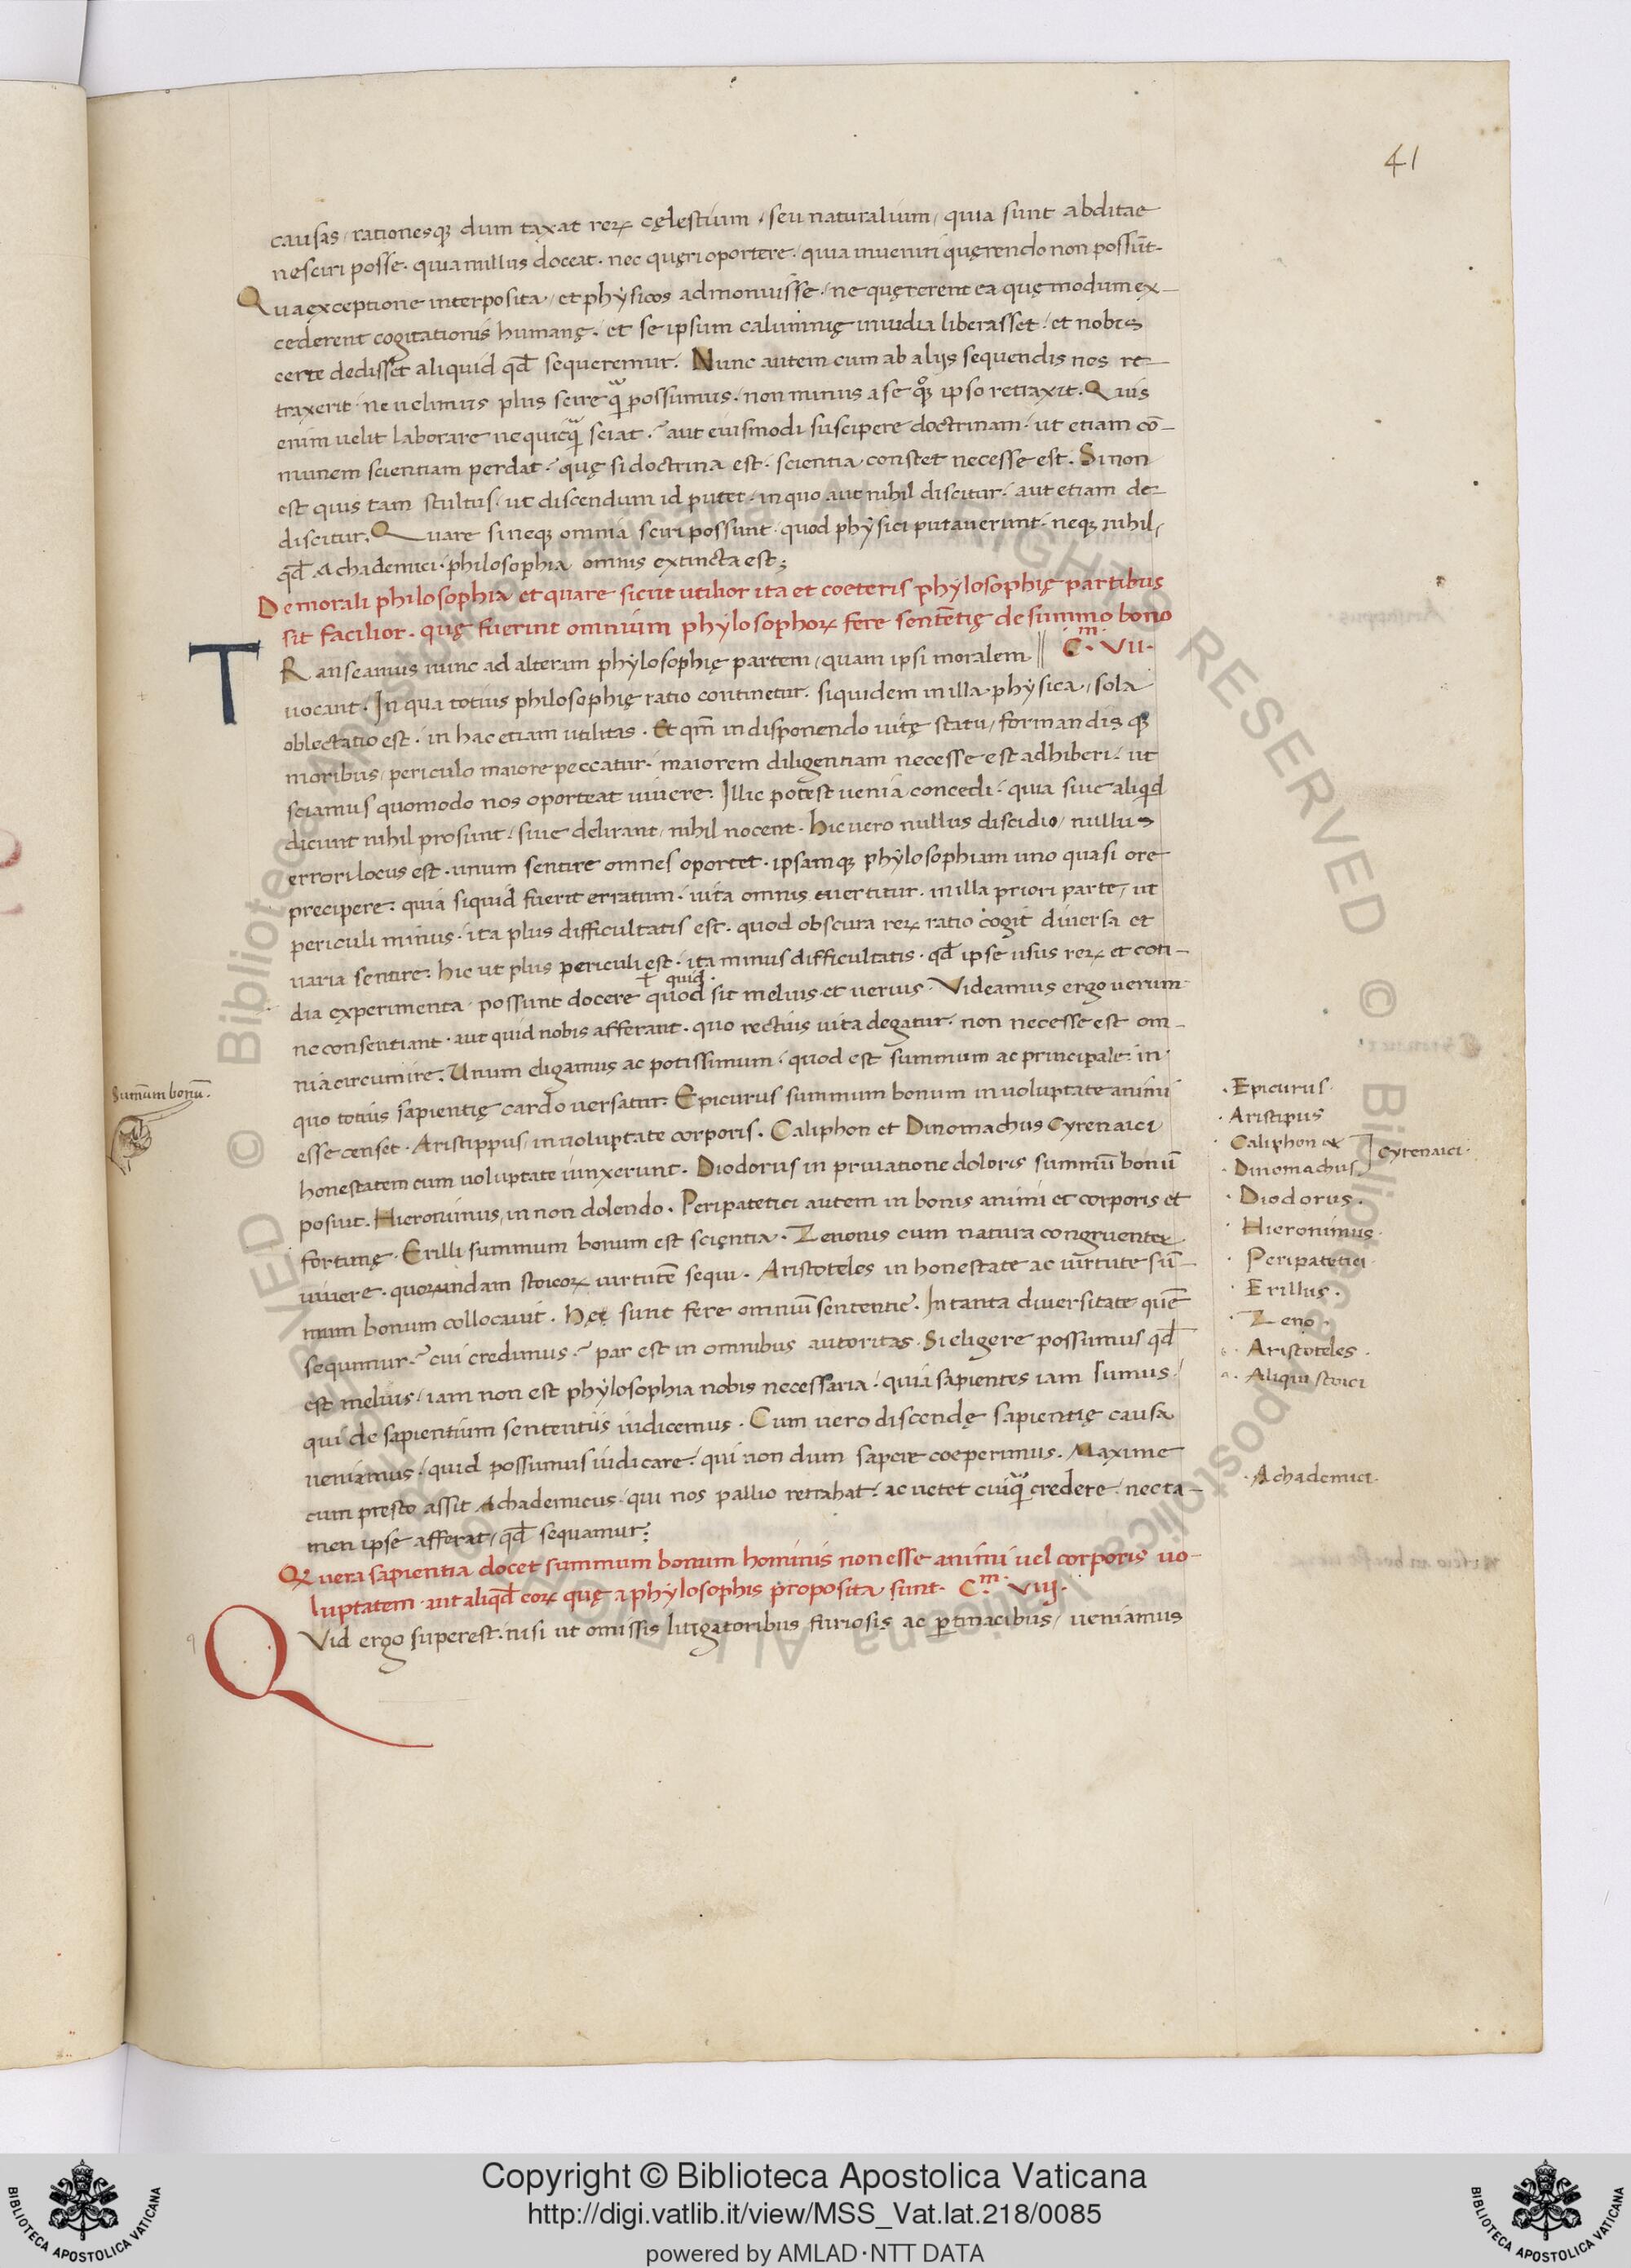 41
causas, rationesqꝫ dum taxat reꝝ cęlestium, seu naturalium, quia sunt abditae
nesciri posse. quia nullus doceat. nec quęri oportere. quia inueniri quęrendo non possūt.
Qua exceptione interposita, et physicos admonuisse, ne quęrerent ea quę modum ex-
cederent cogitationis humanę, et se ipsum calumnię inuidia liberasset, et nobis
certe dedisset aliquid qd̄ sequeremur. Nunc autem cum ab alijs sequendis nos re-
traxerit ne uelimus plus scire qͣ possumus, non minus a se qͦqꝫ ipso retraxit. Quis
enim uelit laborare ne quicqͣ sciat? aut eiusmodi suscipere doctrinam, ut etiam cō-
munem scientiam perdat? quę si doctrina est, scientia constet necesse est. Si non
est quis tam stultus, ut discendum id putet, in quo aut nihil discitur, aut etiam de-
discitur. Quare si neqꝫ omnia sciri possunt, quod physici putauerunt, neqꝫ nihil,
qd̄ Achademici. philosophia omnis extincta est;
De morali philosophia et quare sicut utilior ita et coeteris phylosophię partibus
sit facilior. quę fuerint omnium phylosophoꝝ fere sentētię de summo bono
C.m VII.
TRanseamus nunc ad alteram phylosophię partem, quam ipsi moralem
uocant. In qua totius philosophię ratio continetur. siquidem in illa physica, sola
oblectatio est. in hac etiam utilitas. Et qm̄ in disponendo uitę statu, formandisqꝫ
moribus, periculo maiore peccatur. maiorem diligentiam necesse est adhiberi. ut
sciamus quomodo nos oporteat uiuere. Illic potest uenia concedi. quia siue aliqid
dicunt nihil prosunt, siue delirant, nihil nocent. Hic uero nullus discidio, nullus
errori locus est. unum sentire omnes oportet. ipsamqꝫ phylosophiam uno quasi ore
precipere. quia siquid fuerit erratum. uita omnis euertitur. in illa priori parte, ut
periculi minus. ita plus difficultatis est. quod obscura reꝝ ratio cogit diuersa et
uaria sentire. hic ut plus periculi est. ita minus difficultatis. qd̄ ipse usus reꝝ et coti-
quid.
dia experimenta. possunt docere quod sit melius et uerius. Videamus ergo uerum
ne consentiant. aut quid nobis afferant. quo rectius uita degatur. non necesse est om-
nia circumire. Unum eligamus ac potissimum. quod est summum ac principale. in
quo totius sapientię cardo uersatur. Epicurus summum bonum in uoluptate animi
esse censet. Aristippus, in uoluptate corporis. Caliphon et Dinomachus Cyrenaici
honestatem cum uoluptate iunxerunt. Diodorus in priuatione doloris summū bonū
posuit. Hieronimus, in non dolendo. Peripatetici autem in bonis animi et corporis et
fortunę. Erilli summum bonum est scięntia. Zenonis cum natura congruenter
uiuere. quorundam stoicoꝝ uirtutē sequi. Aristoteles in honestate ac uirtute sū-
mum bonum collocauit. Hęę sunt fere omniū sententie. In tanta diuersitate quē
sequimur? cui credimus? par est in omnibus autoritas. Si eligere possumus qd̄
est melius, iam non est phylosophia nobis necessaria. quia sapientes iam sumus,
qui de sapientium sententiis iudicemus. Cum uero discendę sapientię causa
ueniamus, quid possumus iudicare, qui non dum sapere coeperimus. Maxime
cum presto assit Achademicus, qui nos pallio retrahat, ac uetet cuiqͣ credere. nec ta-
men ipse afferat, qd̄ sequamur.
Qꝫ uera sapientia docet summum bonum hominis non esse animi uel corporis uo-
luptatem. aut aliqd̄ eoꝝ quę a phylosophis proposita sunt. C.m VIIJ.
QVid ergo superest. nisi ut omissis litigatoribus furiosis ac ꝑtinacibus, ueniamus
Sumūm bonū.
. Epicurus.
. Aristipus
. Caliphon et
. Dinomachus
Cyrenaici.
. Diodorus.
. Hieronimus.
. Peripatetici.
. Erillus.
. Zeno.
b. Aristoteles.
a. Aliqui stoici
. Achademici.
Copyright © Biblioteca Apostolica Vaticana
http://digi.vatlib.it/view/MSS_Vat.lat.218/0085
powered by AMLAD·NTT DATA
BIBLIOTECA APOSTOLICA VATICANA
BIBLIOTECA APOSTOLICA VATICANA
© Biblioteca Apostolica Vaticana ALL RIGHTS RESERVED © Biblioteca Apostolica Vaticana ALL RIGHTS RESERVED